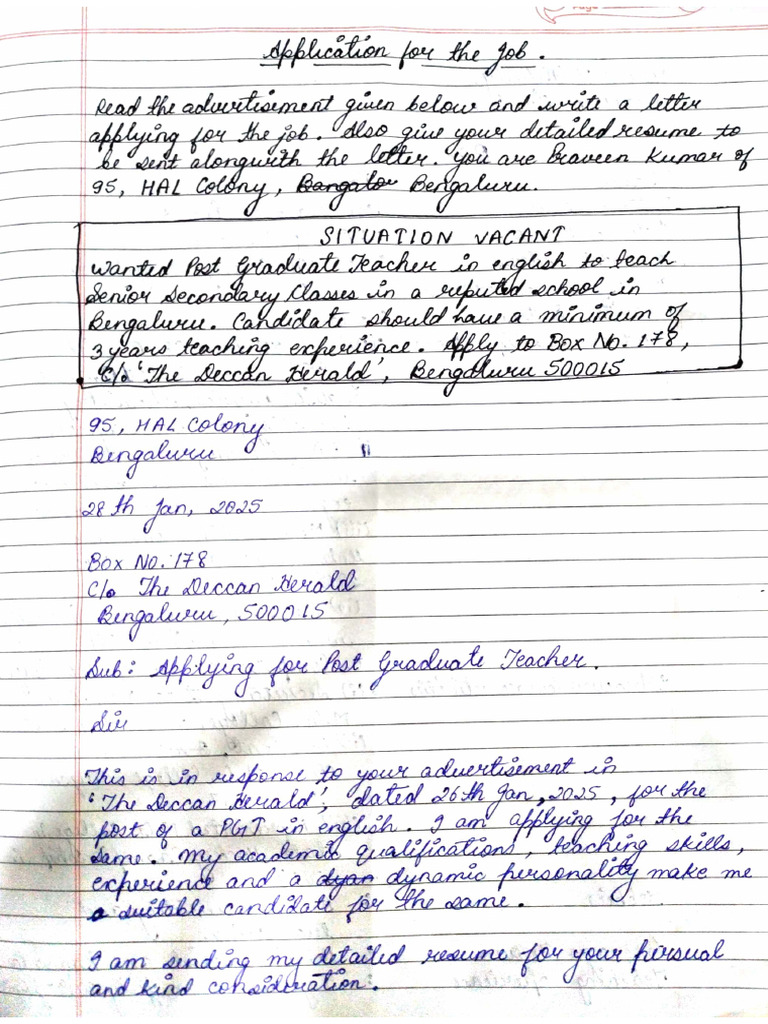 Application for the Job.
Read the advertisement given below and write a letter
applying for the job. Also give your detailed resume to
be sent alongwith the letter. You are Praveen Kumar of
95, HAL Colony, Bengaluru.
SITUATION VACANT
Wanted Post Graduate Teacher in english to teach
Senior Secondary Classes in a reputed school in
Bengaluru. Candidate should have a minimum of
3 years teaching experience. Apply to Box No. 178,
C/o 'The Deccan Herald', Bengaluru 500015
95, HAL Colony
Bengaluru
28th Jan, 2025
Box No. 178
C/o The Deccan Herald
Bengaluru, 500015
Sub: Applying for Post Graduate Teacher.
Sir
This is in response to your advertisement in
'The Deccan Herald', dated 26th Jan, 2025, for the
post of a PGT in english. I am applying for the
same. My academic qualifications, teaching skills,
experience and a dynamic personality make me
a suitable candidate for the same.
I am sending my detailed resume for your perusal
and kind consideration.